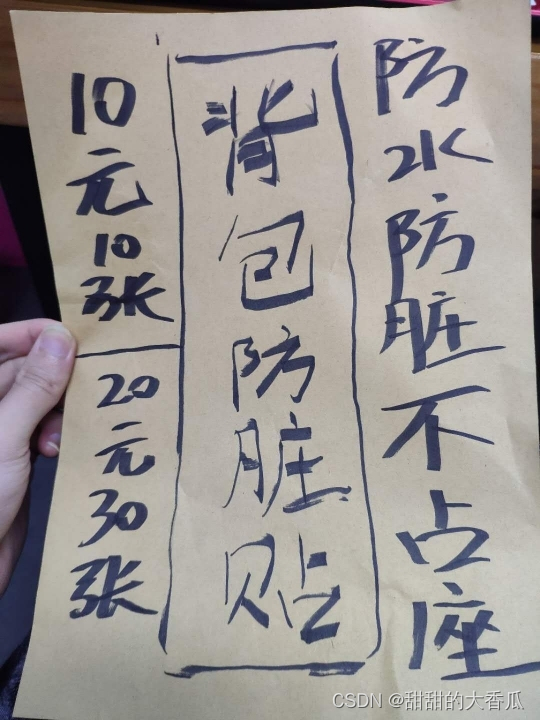 防水防脏不占座
背包防脏贴
10元10张
20元30张
CSDN @甜甜的大香瓜